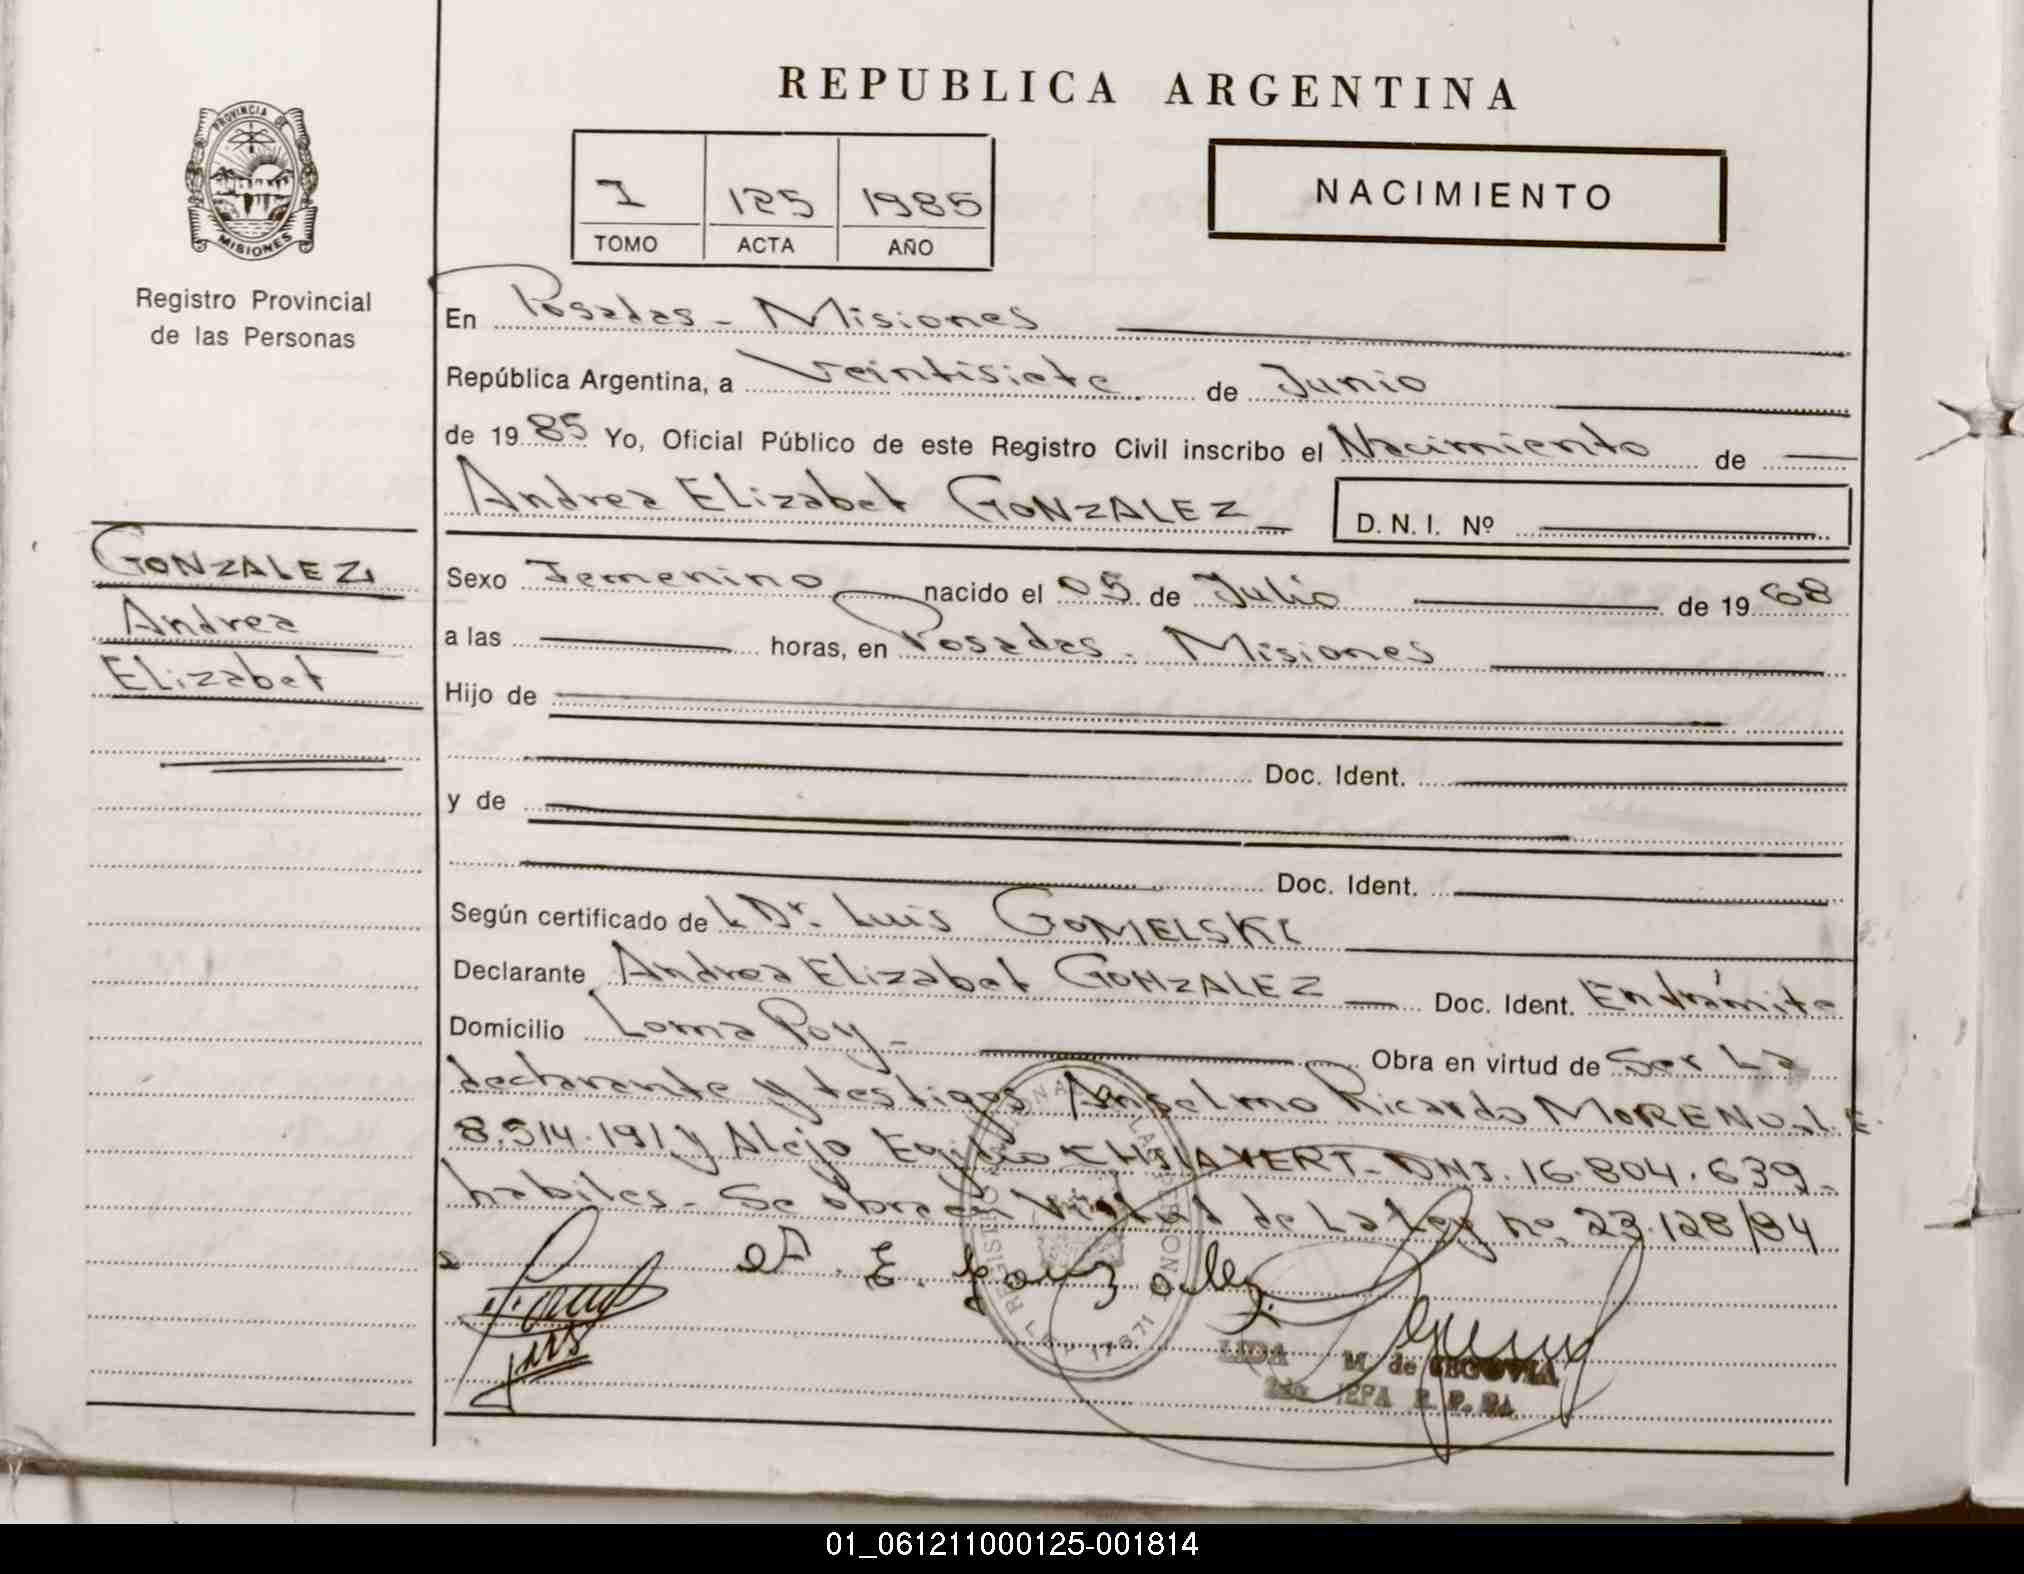 REPUBLICA ARGENTINA
PROVINCIA DE
MISIONES
Registro Provincial
de las Personas
I 125 1985
TOMO ACTA AÑO
NACIMIENTO
En Posadas - Misiones
República Argentina, a Veintisiete de Junio
de 1985 Yo, Oficial Público de este Registro Civil inscribo el Nacimiento de
Andrea Elizabet GONZALEZ
D. N. I. Nº
GONZALEZ
Andrea
Elizabet
Sexo Femenino nacido el 05 de Julio de 1968
a las horas, en Posadas - Misiones
Hijo de
Doc. Ident.
y de
Doc. Ident.
Según certificado de L Dr. Luis GOMELSKI
Declarante Andrea Elizabet GONZALEZ Doc. Ident. En trámite
Domicilio Loma Poy - Obra en virtud de Ser La
declarante y testigos Anselmo Ricardo MORENO L.E.
8.514.191 y Alejo Egidio CHIAVERT - DNI. 16.804.639 -
habiles - Se obra en virtud de La Ley nº 23.128/84
A. E. Gonzalez
LEY 17671
LIDA M. de SEGOVIA
2da JEFA R. P. P.
01_061211000125-001814